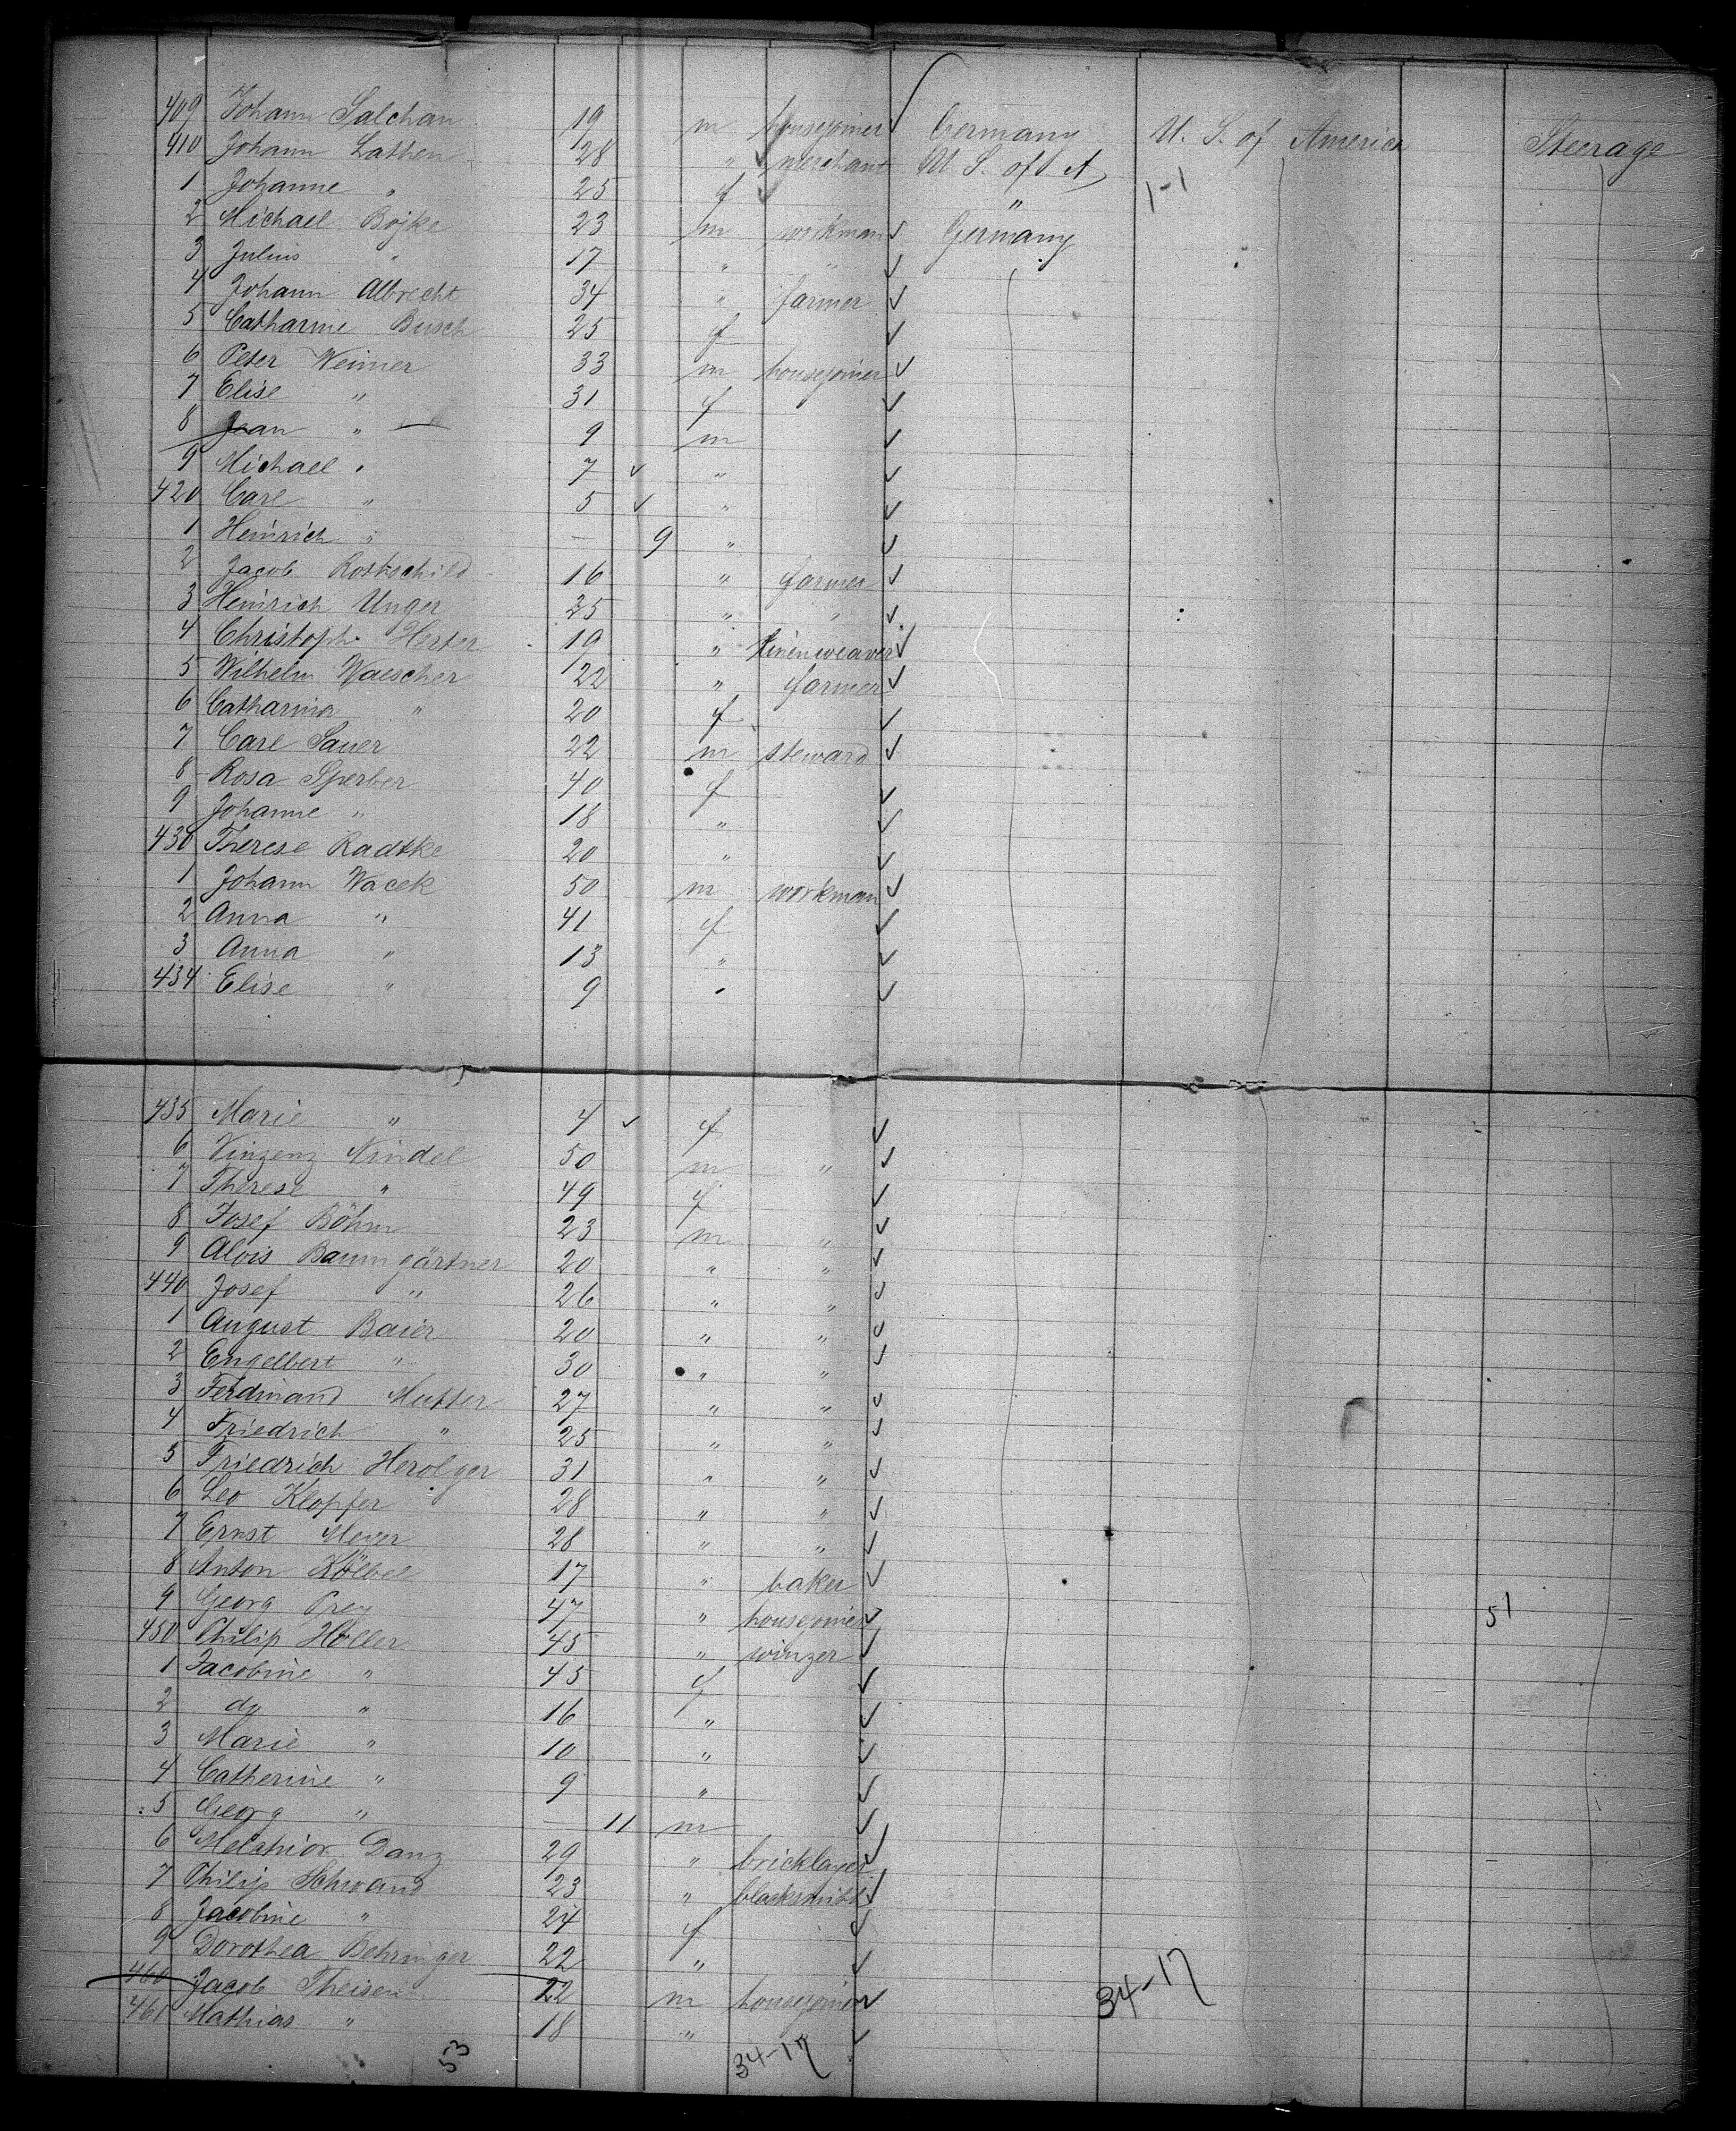 409 Johann Salchan 19 m housejoiner ✓ Germany U. S. of America Steerage
410 Johann Lathen 28 " ✓ merchant U S. of A
1 Johanne " 25 f ✓ " 1-1
2 Michael Bojke 23 m workman ✓ Germany
3 Julius " 17 " " ✓
4 Johann Albrecht 34 " farmer ✓
5 Catharine Busch 25 f ✓
6 Peter Weimer 33 m housejoiner ✓
7 Elise " 31 f ✓
8 Jean " 9 m ✓
9 Michael " 7 ✓ " ✓
420 Carl " 5 ✓ " ✓
1 Heinrich " — 9 " ✓
2 Jacob Rothschild 16 " farmer ✓
3 Heinrich Unger 25 " " ✓
4 Christoph Herter 19 " linenweaver ✓
5 Wilhelm Waescher 22 " farmer ✓
6 Catharina " 20 f ✓
7 Carl Sauer 22 m steward ✓
8 Rosa Sperber 40 f ✓
9 Johanne " 18 " ✓
430 Therese Radtke 20 " ✓
1 Johann Wacek 50 m workman ✓
2 Anna " 41 f ✓
3 Anna " 13 " ✓
434 Elise " 9 " ✓
435 Marie " 4 ✓ f ✓
6 Vinzenz Nindel 50 m " ✓
7 Therese " 49 f ✓
8 Josef Böhm 23 m " ✓
9 Alois Baumgärtner 20 " " ✓
440 Josef " 26 " " ✓
1 August Baier 20 " " ✓
2 Engelbert " 30 " " ✓
3 Ferdinand Mutter 27 " " ✓
4 Friedrich " 25 " " ✓
5 Friedrich Herolger 31 " " ✓
6 Leo Klopfer 28 " " ✓
7 Ernst Meyer 28 " " ✓
8 Anton Kölbel 17 " baker ✓
9 Georg Prey 47 " housejoiner ✓ 51
450 Philip Höller 45 " winzer ✓
1 Jacobine " 45 f ✓
2 do " 16 " ✓
3 Marie " 10 " ✓
4 Catherine " 9 " ✓
5 Georg " — 11 m ✓
6 Melchior Danz 29 " bricklayer ✓
7 Philip Schwand 23 " blacksmith ✓
8 Jacobine " 24 f ✓
9 Dorothea Behringer 22 " ✓
460 Jacob Theisen 22 m housejoiner ✓ 34-17
461 Mathias " 18 " " ✓
53 34-17